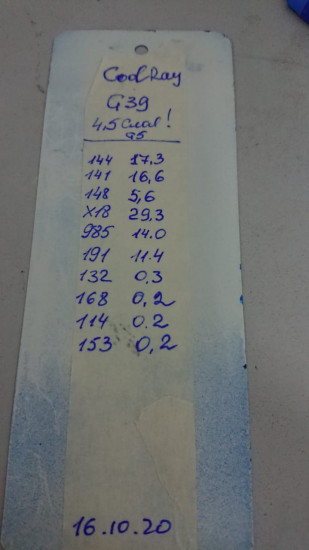 CoolRay
G39
4,5 слоя!
95
144 17,3
141 16,6
148 5,6
X18 29,3
985 14.0
191 11.4
132 0,3
168 0,2
114 0.2
153 0,2
16.10.20